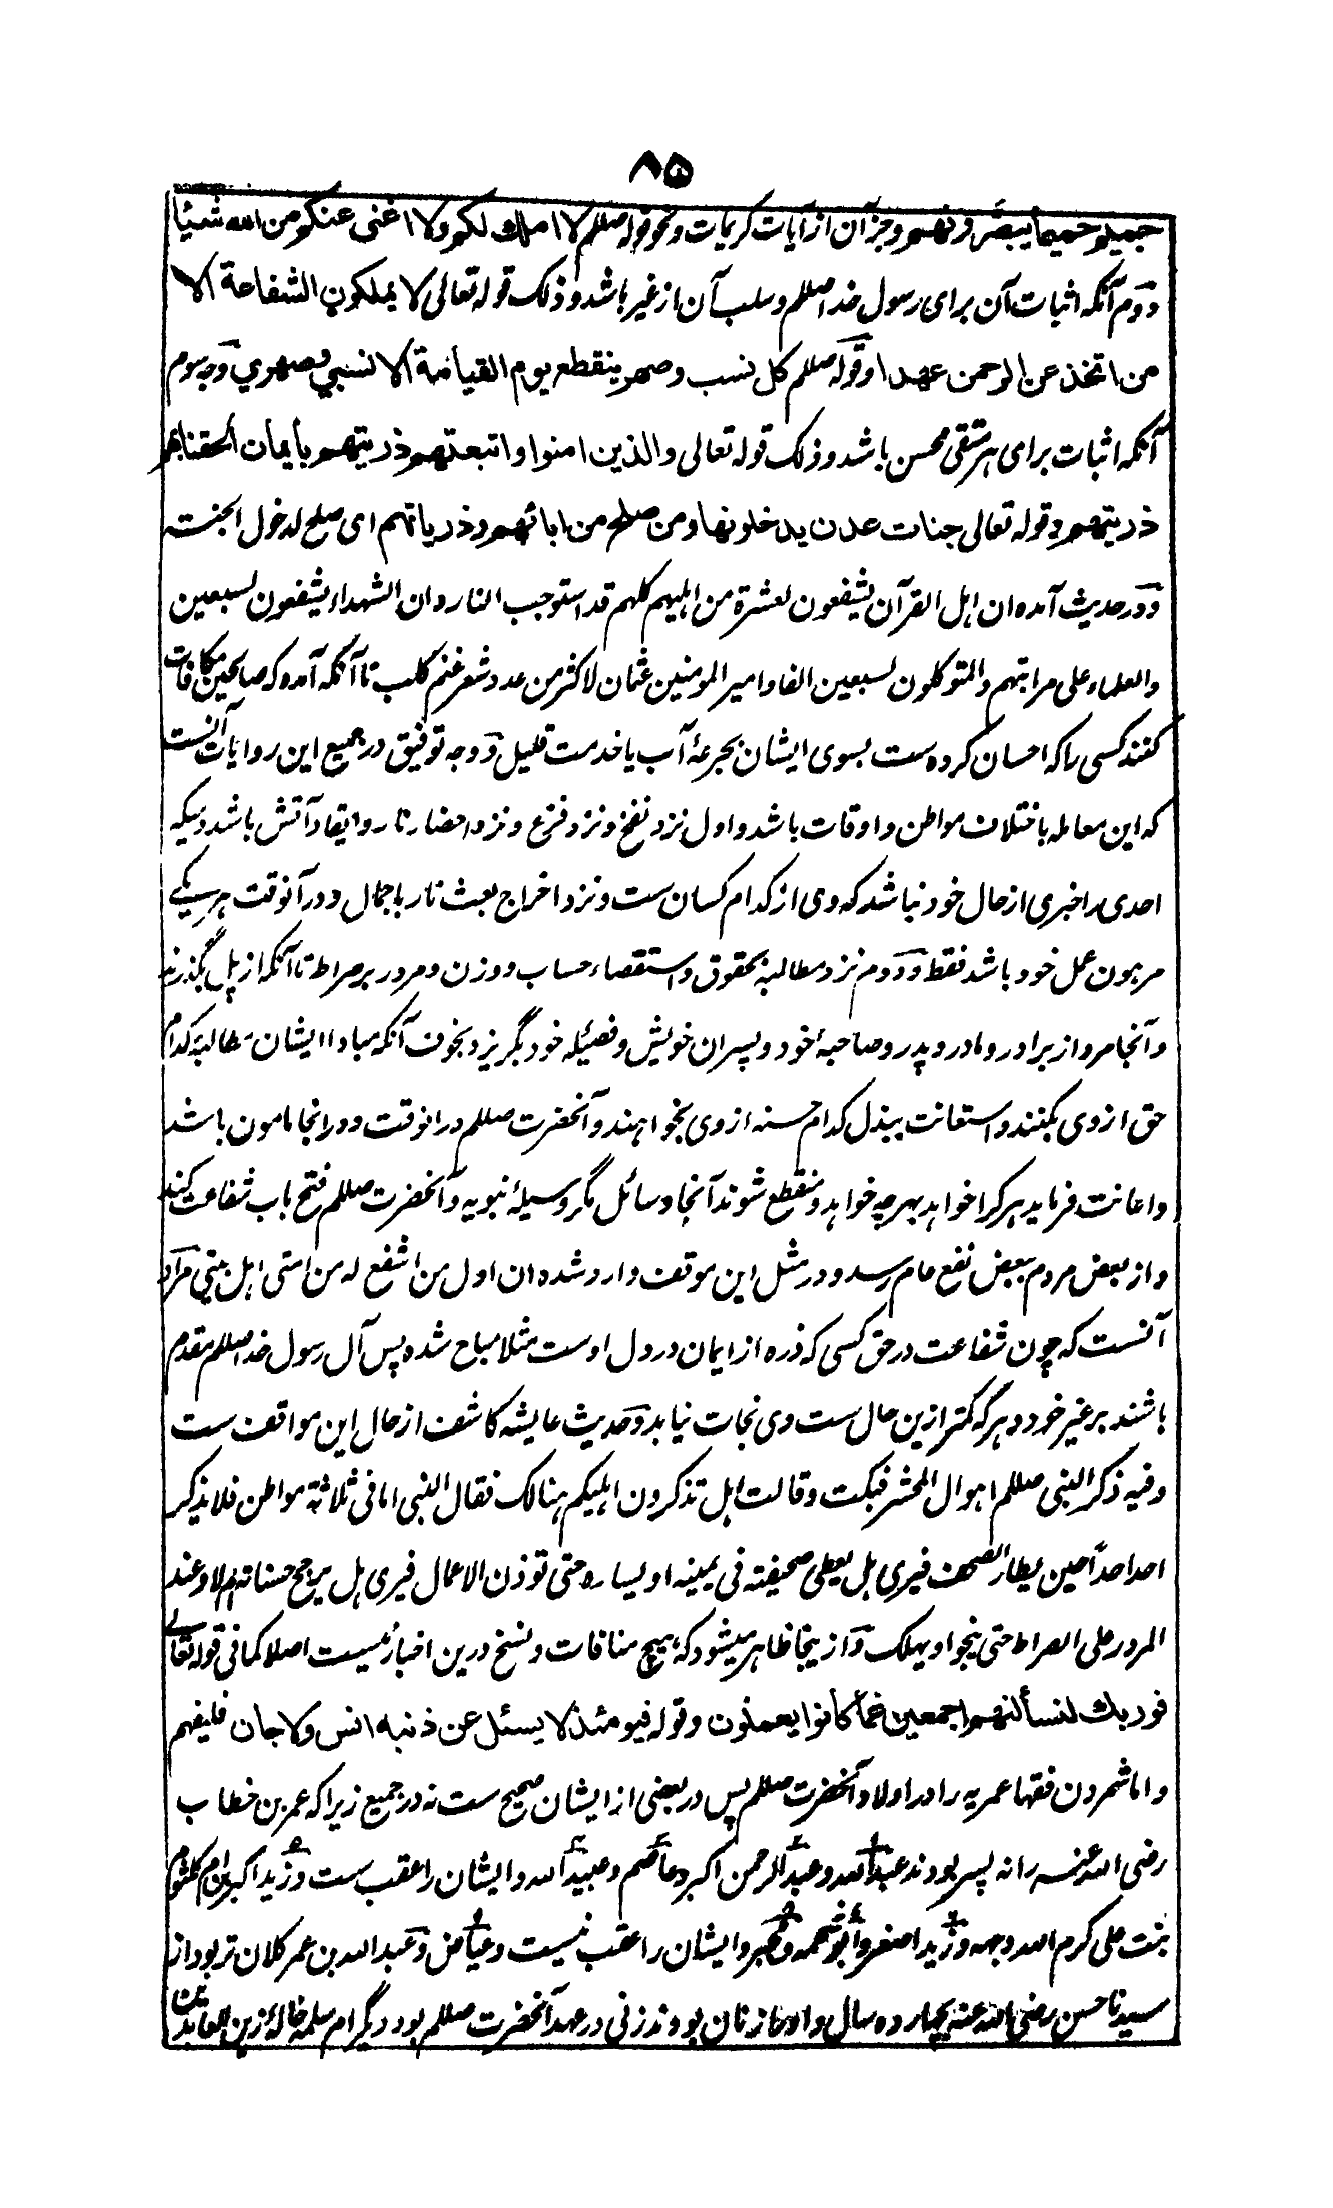 ۸۵
حمیم حمیما یبصرونهم و جز آن از آیات کریمات و نحو قوله صللم لا املك لكم ولا اغنی عنكم من الله شیئا
دوم آنکه اثبات آن برای رسول خدا صللم و سلب آن از غیر باشد و ذلک قوله تعالی لا یملكون الشفاعة الا
من اتخذ عند الرحمن عهدا و قوله صللم کل نسب و صهر ینقطع یوم القیامة الا نسبي و صهري وجه سوم
آنکه اثبات برای هر متقی محسن باشد و ذلک قوله تعالی والذین امنوا واتبعتهم ذریتهم بأیمان ألحقنا بهم
ذریتهم و قوله تعالی جنات عدن یدخلونها ومن صلح من ابائهم و ذریاتهم ای صلح لدخول الجنته
و در حدیث آمده ان اهل القرآن یشفعون لعشرة من اهلیهم کلهم قد استوجب النار و ان الشهداء یشفعون لسبعین
والعلماء علی مراتبهم والمتوکلون لسبعین الفا و امیر المومنین عثمان لاکثر من عدد شعر غنم کلب تا آنکه آمده که صالحین مکافات
کنند کسی را که احسان کرده ست بسوی ایشان بجرعهٔ آب یا خدمت قلیل و وجه توفیق در جمیع این روایات آنست
که این معامله باختلاف مواطن و اوقات باشد و اول نزد نفخ و نزد فزع و نزد احضار نار و ایقاد آتش باشد و یکه
احدی را خبری از حال خود نباشد که وی از کدام کسان ست و نزد اخراج بعث نار باجمال و در آنوقت هر یکے
مرهون عمل خود باشد فقط و دوم نزد مطالبه بحقوق و استقصاء حساب و وزن و مرور بر صراط تا آنکه از پل بگذرند
و آنجا مرو از برادر و مادر و پدر و صاحبهٔ خود و پسران خویش و فصیلهٔ خود بگریزد بخوف آنکه مبادا ایشان مطالبهٔ کدام
حق از وی بکنند و استعانت ببذل کدام حسنه از وی بخواهند و آنحضرت صللم در انوقت و در انجا مامون باشد
و اعانت فرماید هر کرا خواهد بهر چه خواهد و منقطع شوند آنجا وسائل مگر وسیلهٔ نبویه و آنحضرت صللم فتح باب شفاعت کند
و از بعض مردم ببعض نفع عام رسد و در مثل این موقف وارد شده ان اول من اشفع له من امتی اهل بیتی مراد
آنست که چون شفاعت در حق کسی که ذره از ایمان در دل اوست مثلا مباح شده پس آل رسول خدا صللم مقدم
باشند بر غیر خود و هر که کمتر ازین حال ست وی نجات نیابد و حدیث عایشه کاشف از حال این مواقف ست
وفیه ذکر النبی صللم اهوال المحشر فبکت و قالت اهل تذکرون اهلیکم هنالک فقال النبی اما فی ثلاثة مواطن فلا یذکر
احد احداً حین یطار الصحف فیری هل یعطی صحیفته فی یمینه او یساره حتی توزن الاعمال فیری هل یرجح حسناته ام لا و عند
المرور علی الصراط حتی ینجو او یهلک و ازینجا ظاهر میشود که هیچ منافات و نسخ درین اخبار نیست اصلا کما فی قوله تعالی
فوربك لنسألنهم اجمعین عما كانوا یعملون و قوله فیومئذ لا یسئل عن ذنبه انس ولا جان فلیفهم
و اما شمردن فقها عمریه را در اولاد آنحضرت صللم پس در بعضی از ایشان صحیح ست نه در جمیع زیرا که عمر بن خطاب
رضی الله عنه را نه پسر بودند عبد الله و عبد الرحمن اکبر و عاصم و عبید الله و ایشان را عقب ست و زید اکبر از ام کلثوم
بنت علی کرم الله وجهه و زید اصغر و ابو شحمه و مجبر و ایشان را عقب نیست و عیاض و عبد الله بن عمر کلان تر بود از
سیدنا حسن رضی الله عنه بچهارده سال و او از زنان بودند زنی در عهد آنحضرت صللم بود دیگر ام سلمه خالهٔ زین العابدین